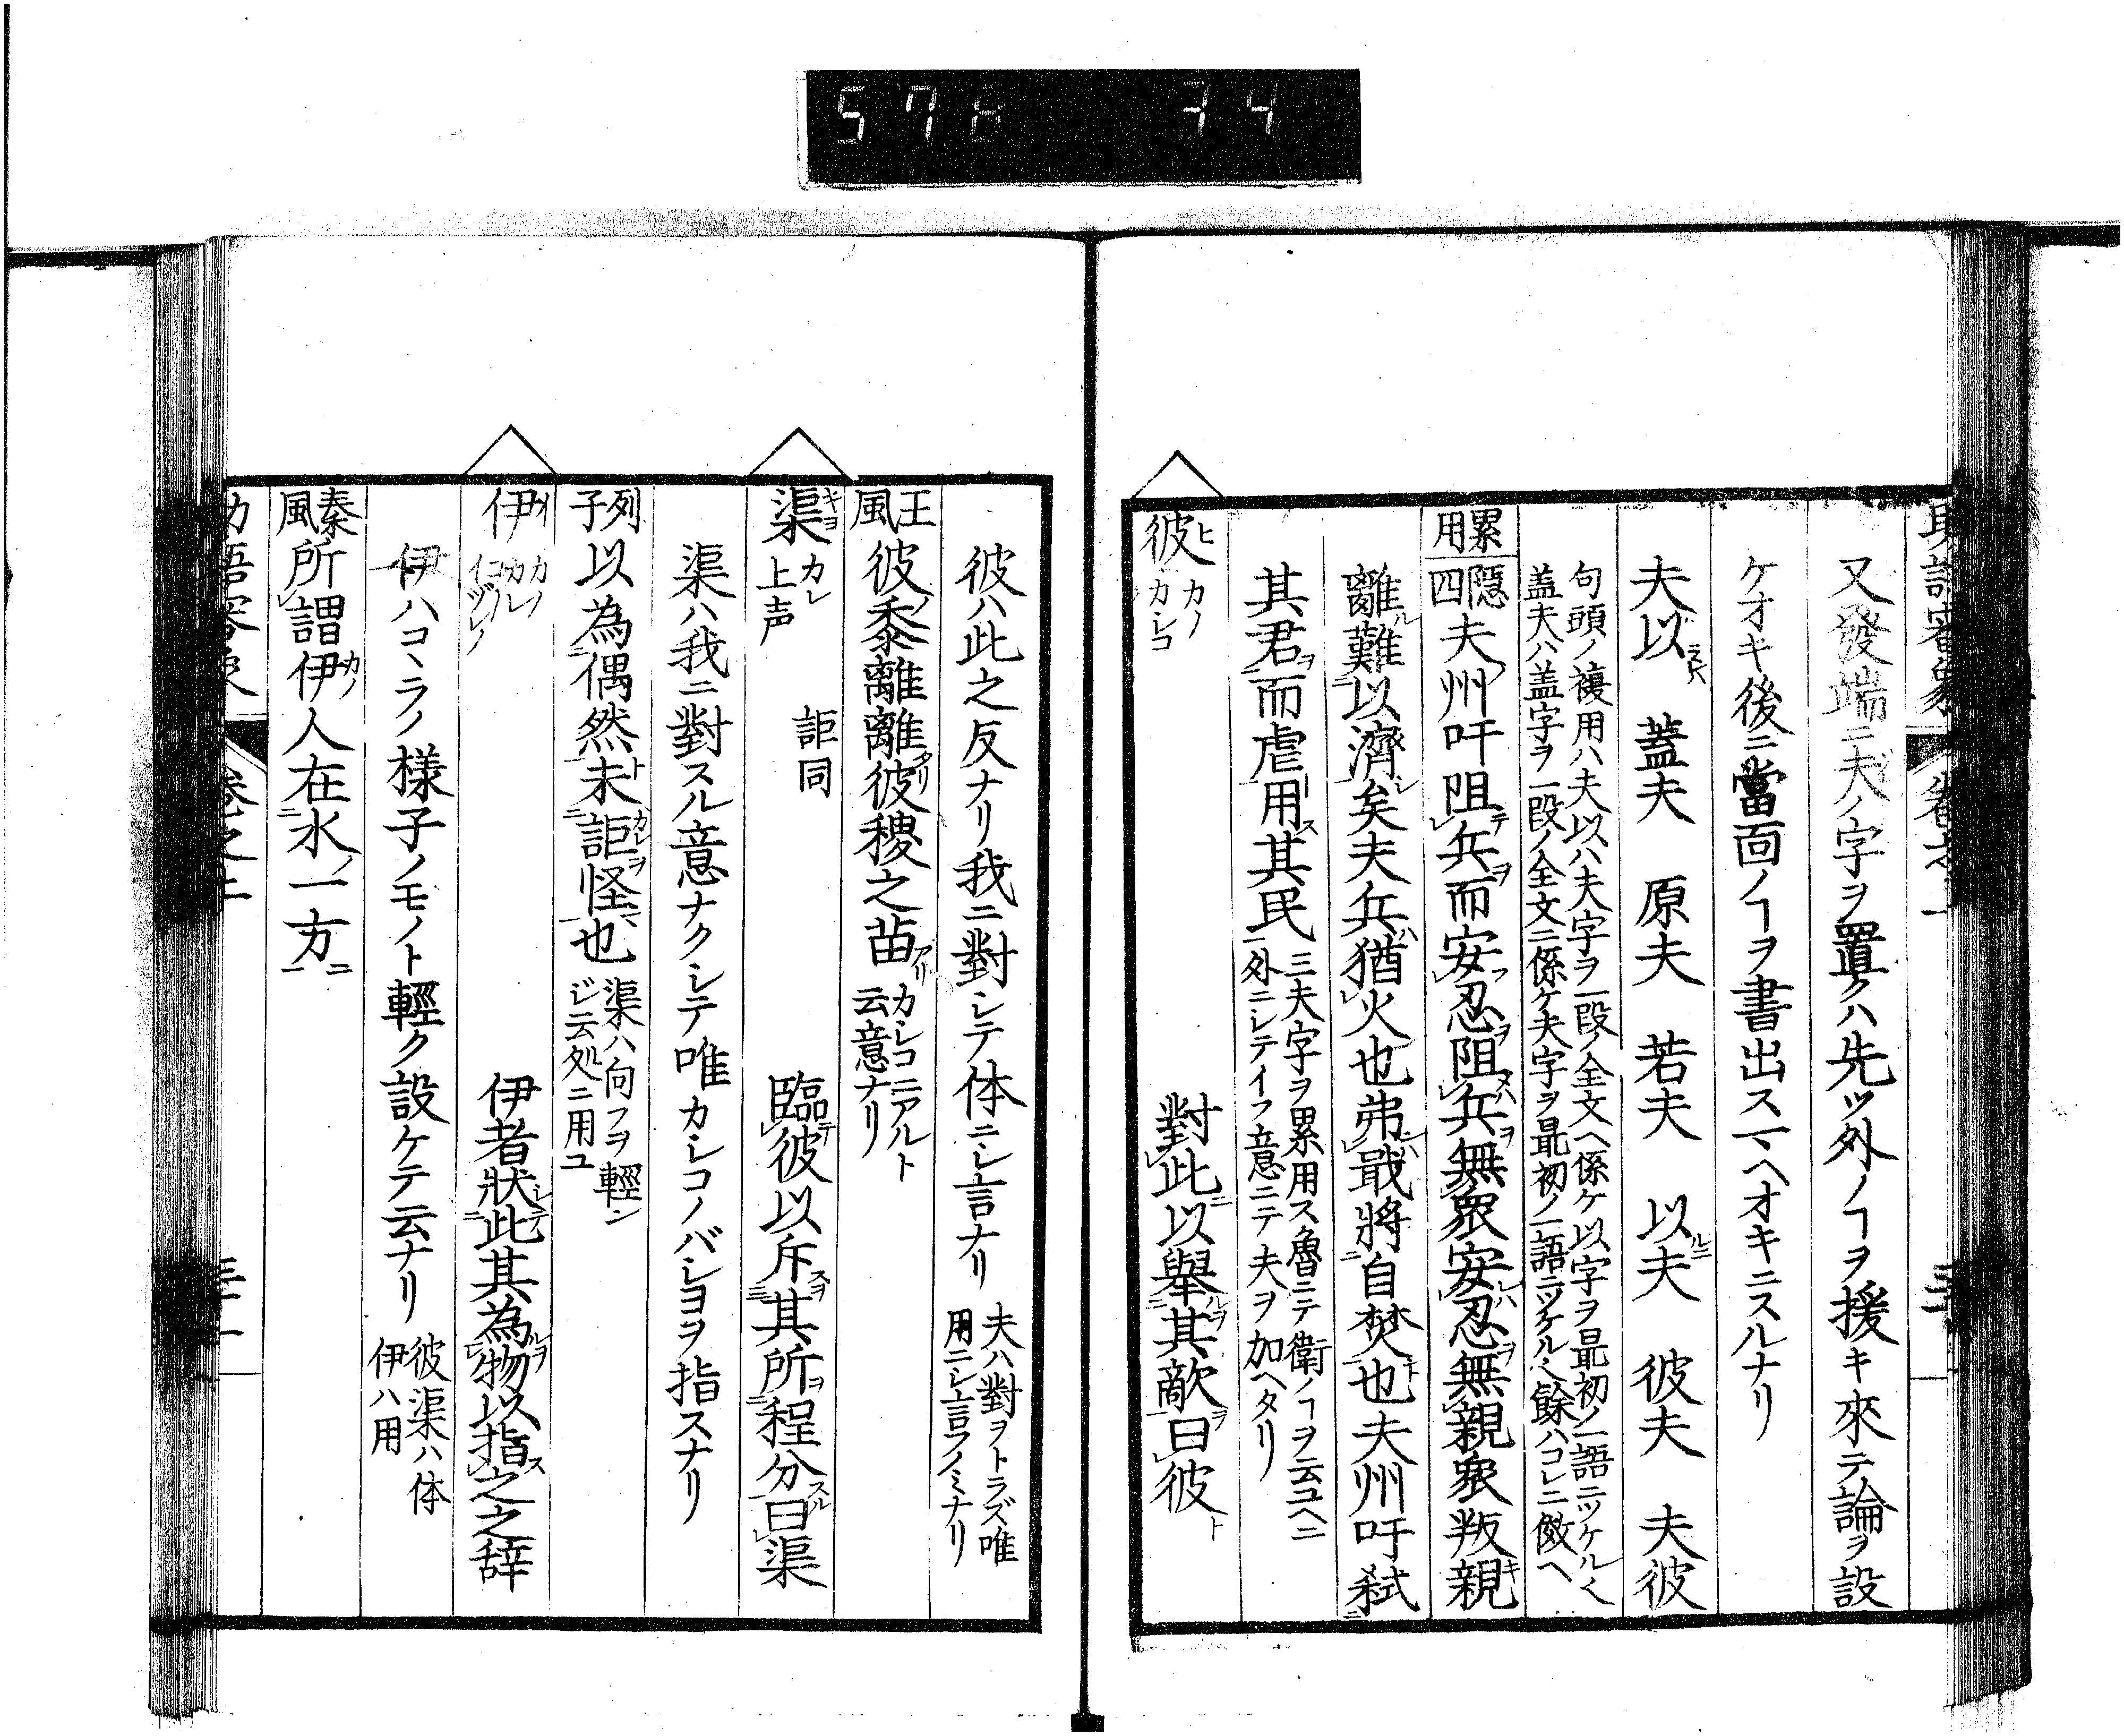 又發端ニ夫ノ字ヲ置クハ先ツ外ノヿヲ援キ來テ論ヲ設
ケオキ後ニ當面ノヿヲ書出スマヘオキニスルナリ
夫以 蓋夫 原夫 若夫 以夫 彼夫 夫彼
句頭ノ複用ハ夫以ハ夫字ヲ一段ノ全文ヘ係ケ以字ヲ最初ノ一語ニツケル
蓋夫ハ蓋字ヲ一段ノ全文ニ係ケ夫字ヲ最初ノ一語ニツケル 餘ハコレニ傚ヘ
累用 隠四 夫州吁阻兵而安忍阻兵無衆安忍無親衆叛親
離難以濟矣夫兵猶火也弗戢將自焚也夫州吁弑
其君而虐用其民 三夫字ヲ累用ス魯ニテ衛ノヿヲ云ユヘニ
外ニシテイフ意ニテ夫ヲ加ヘタリ
彼 ヒ カノ カシコ 對此以舉其敵曰彼
彼ハ此之反ナリ我ニ對シテ体ニシ言ナリ 夫ハ對ヲトラズ唯
用ニシ言フノミナリ
王風 彼黍離離彼稷之苗 カシコニアルト
云意ナリ
渠 キヨ カレ 上声 詎同 臨彼以斥其所程分曰渠
渠ハ我ニ對スル意ナクシテ唯カシコノバシヨヲ指スナリ
列子 以為偶然未詎怪也 渠ハ向フヲ輕ン
ジ云処ニ用ユ
伊 イ カノ カレ 伊者狀此其為物以指之之辞
伊ハコヽラノ様子ノモノト輕ク設ケテ云ナリ 彼渠ハ体
伊ハ用
秦風 所謂伊人在水一方